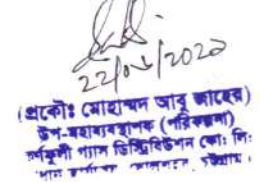 22/০৬/2023
(প্রকৌঃ মোহাম্মদ আবু জাহের)
উপ-মহাব্যবস্থাপক (পরিকল্পনা)
কর্ণফুলী গ্যাস ডিস্ট্রিবিউশন কোঃ লিঃ
চট্টগ্রাম।